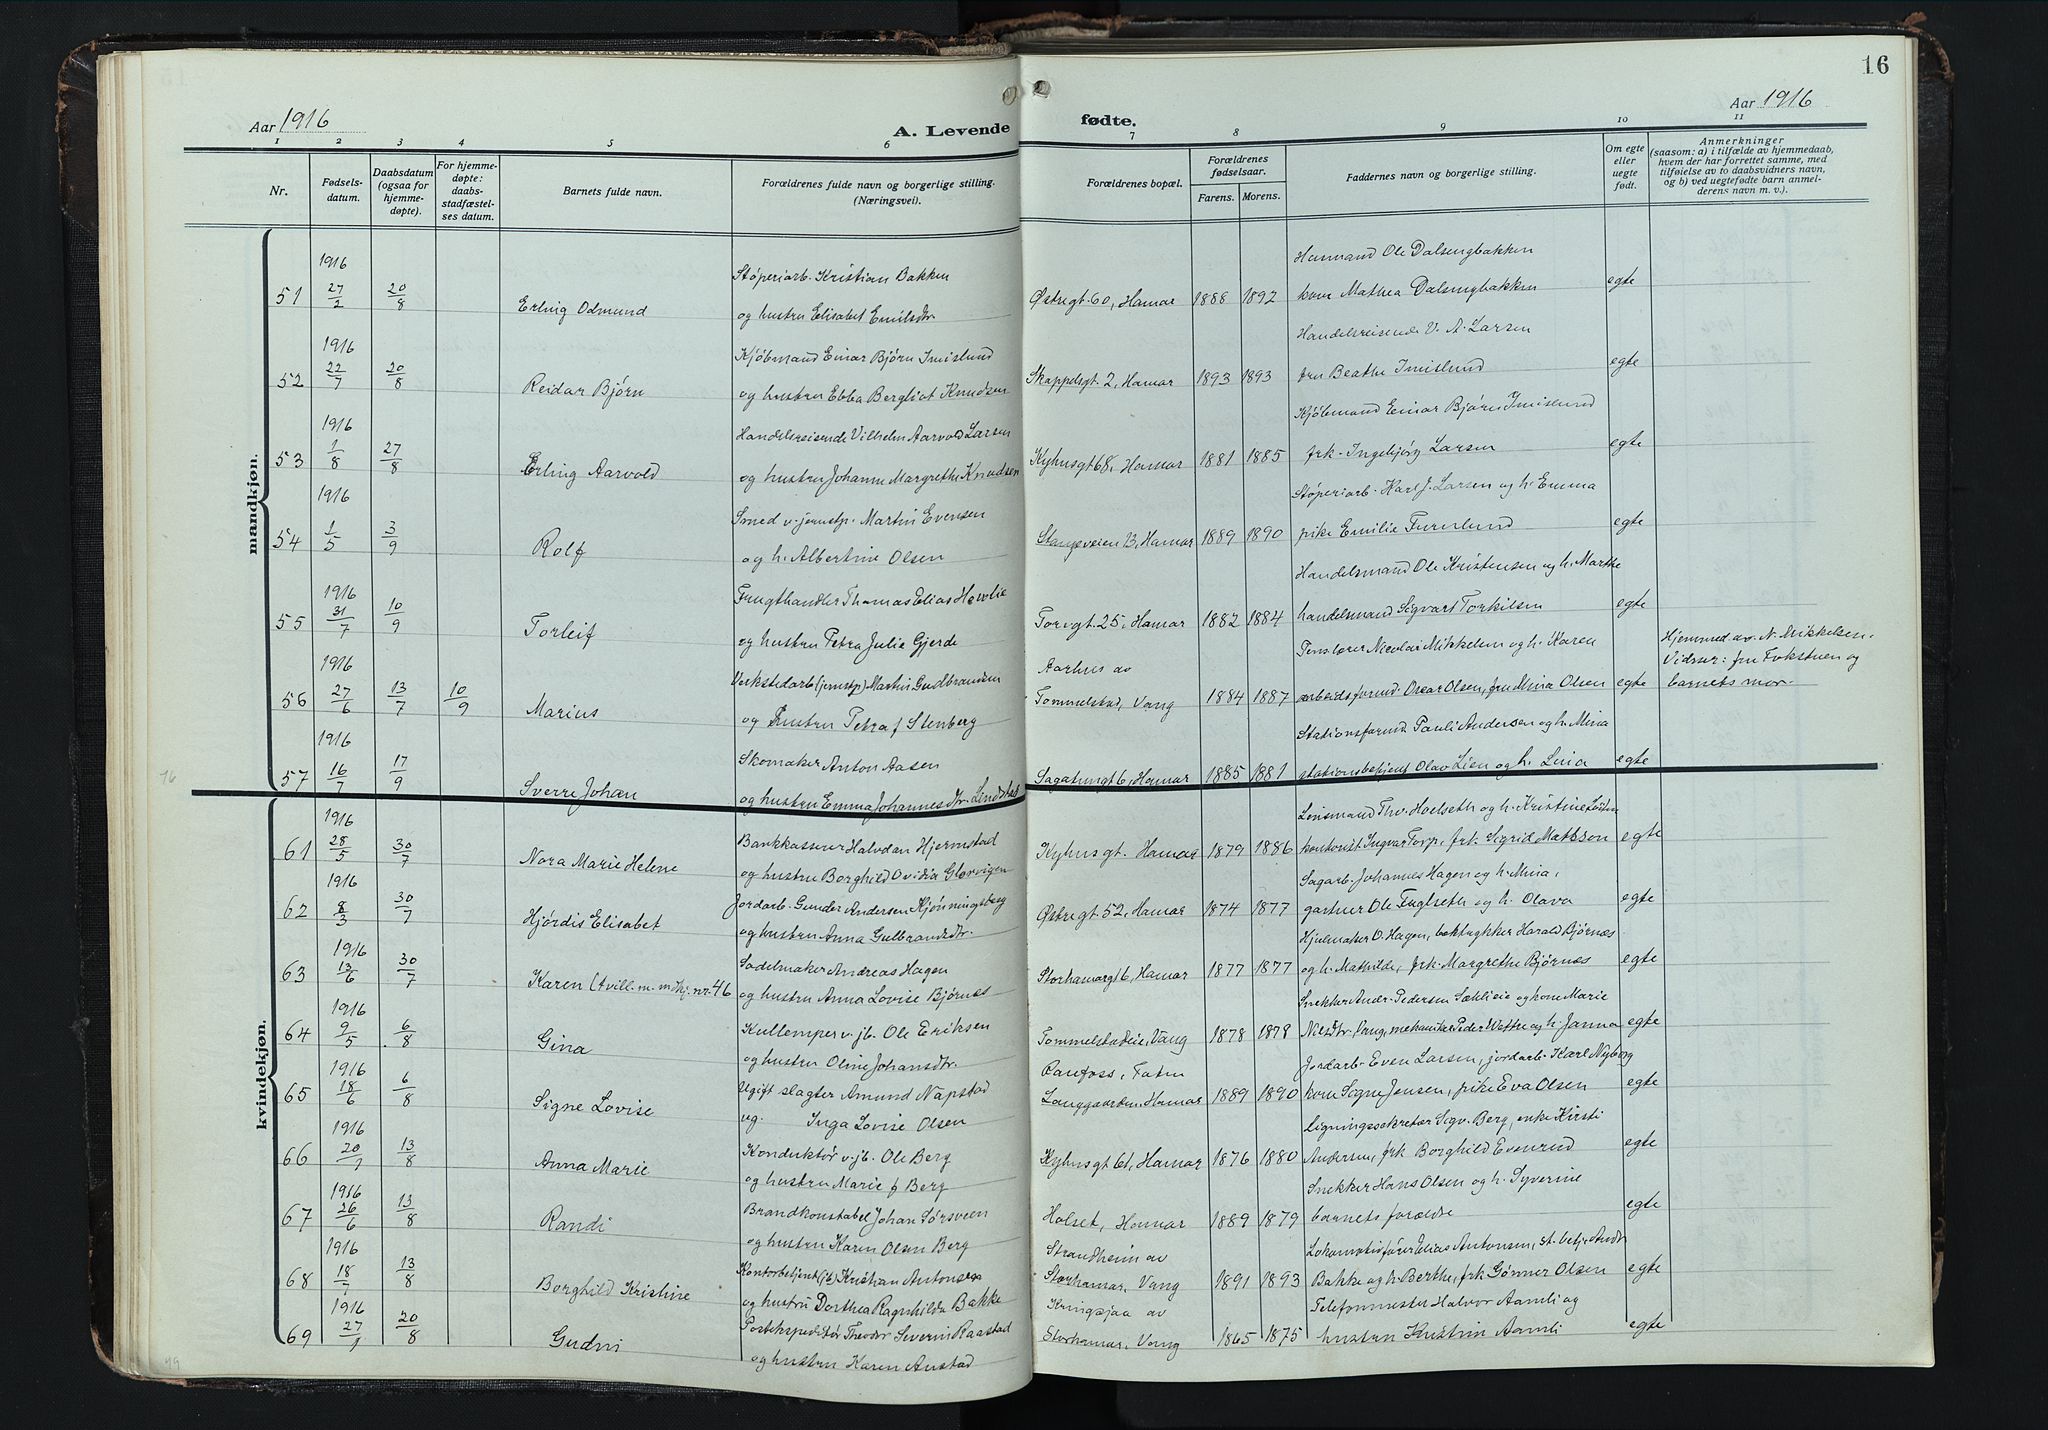 16
Aar 1916
A. Levende fødte.
Aar 1916
1 2 3 4 5 6 7 8 9 10 11
Nr.
Fødsels-datum.
Daabsdatum (ogsaa for hjemme-døpte).
For hjemme-døpte: daabs-stadfæstel-ses datum.
Barnets fulde navn.
Forældrenes fulde navn og borgerlige stilling. (Næringsvei).
Forældrenes bopæl.
Forældrenes fødselsaar.
Farens. Morens.
Faddernes navn og borgerlige stilling.
Om egte eller uegte født.
Anmerkninger
(saasom: a) i tilfælde av hjemmedaab, hvem der har forrettet samme, med tilføielse av to daabsvidners navn, og b) ved uegtefødte barn anmel-derens navn m. v.).
mandkjøn.
1916
Støperiarb. Kristian Bakken
Husmand Ole Dalsengbakken
51 27/2 20/8 Erling Odmund
og hustru Elisabet Emilsdtr.
Østregt. 60, Hamar 1888 1892 kone Mathea Dalsengbakken egte
1916
Kjøbmand Einar Bjørn Imislund
Handelsreisende V. A. Larsen
52 22/7 20/8 Reidar Bjørn
og hustru Ebba Bergliot Knudsen
Skappelsgt. 2, Hamar 1893 1893 fru Beathe Imislund egte
1916
Handelsreisende Vilhelm Aarvold Larsen
Kjøbmand Einar Bjørn Imislund
53 1/8 27/8 Erling Aarvold
og hustru Johanne Margrethe Knudsen
Kyhusgt 68, Hamar 1881 1885 frk. Ingebjørg Larsen egte
1916
Smed v. jernstp. Martin Evensen
Støperiarb. Karl J. Larsen og h. Emma
54 1/5 3/9 Rolf
og h. Albertine Olsen
Stangeveien 13, Hamar 1889 1890 pike Emilie Furulund egte
1916
Frugthandler Thomas Elias
Handelsmand Ole Kristensen og h. Marthe
55 31/7 10/9 Torleif
og hustru Petra Julie Gjerde
Torvgt. 25, Hamar 1882 1884 handelsmand Sigvart Torkilsen egte
1916
Verkstedarb (jernstp) Martin Gudbrandsen
Aarhus av
Nicolai Mikkelsen og h. Karen
Hjemmed. av N. Mikkelsen.
Vidner: fru Fokstuen og
barnets mor.
56 27/6 13/7 10/9 Marius
og hustru Petra f Stenberg
Tommelstad, Vang 1884 1887 arbeidsformd. Oscar Olsen, fru Mina Olsen egte
1916
Skomaker Anton Aasen
Stationsformd. Pauli Andersen og h. Mina
57 16/7 17/9 Sverre Johan
og hustru Emma Johannesdtr. Lindstad
Sagatungt 6, Hamar 1885 1881 stationsbetjent Olav Lien og h. Lina egte
kvindekjøn.
1916
Bankkasserer Halvdan Hjermstad
Lensmand Thv. Hoelseth og h. Kristine
61 28/5 30/7 Nora Marie Helene
og hustru Borghild Ovidia Glørvigen
Kyhusgt. Hamar 1879 1886 kontorist Ingvar Torp, frk. Sigrid Mathson egte
1916
Jordarb. Gunder Andersen Kjønningsberg
Sagarb. Johannes Hagen og h. Mina,
62 8/3 30/7 Hjørdis Elisabet
og hustru Anna Gulbrandsdtr.
Østregt. 52, Hamar 1874 1877 gartner Ole Fuglseth og h. Olava egte
1916
Sadelmaker Andreas Hagen
Hjulmaker O. Hagen, boktrykker Harald Bjørnæs
63 13/6 30/7 Karen (tvill. m. mdkj. nr. 46
og hustru Anna Lovise Bjørnæs
Storhamargt 6, Hamar 1877 1877 og h. Mathilde, frk. Margrethe Bjørnæs egte
1916
Kullemper v. jb. Ole Eriksen
Snekker Andr. Pedersen Sælileie og kone Marie
64 9/5 6/8 Gina
og hustru Oline Johansdtr.
Tommelstadeie, Vang 1878 1878 Nilsdtr. Vang, mekaniker Peder Wettre og h. Janna egte
1916
Ugift slagter Amund Napstad
Ranefoss, Faten
Jordarb. Even Larsen, jordarb. Karl Nyborg
65 18/6 6/8 Signe Lovise
ug. Inga Lovise Olsen
Langgaarden, Hamar 1889 1890 kone Signe Jensen, pike Eva Olsen egte
1916
Konduktør v. jb. Ole Berg
Ligningssekretær Sigv. Berg, enke Kirsti
66 20/7 13/8 Anna Marie
og hustru Marie f Berg
Kyhusgt 61, Hamar 1876 1880 Andersen, frk. Borghild Evenrud egte
1916
Brandkonstabel Johan Sørsveen
Snekker Hans Olsen og h. Syverine
67 26/6 13/8 Randi
og hustru Karen Olsen Berg
Holset, Hamar 1889 1879 barnets forældre egte
1916
Kontorbetjent (jb) Kristian Antonsen
Strandheim av
Lokomotivfører Elias Antonsen, st. betj. Andr
68 18/7 13/8 Borghild Kristine
og hustru Dorthea Ragnhilda Bakke
Storhamar, Vang 1891 1893 Bakke og h. Berthe, frk Gønner Olsen egte
1916
Postekspeditør Theodor Severin Raastad
Kringsjaa av
Telefonmester Halvor Aamli og
69 27/1 20/8 Gudni
og hustru Karen Anstad
Storhamar, Vang 1865 1875 hustru Kristin Aamli egte